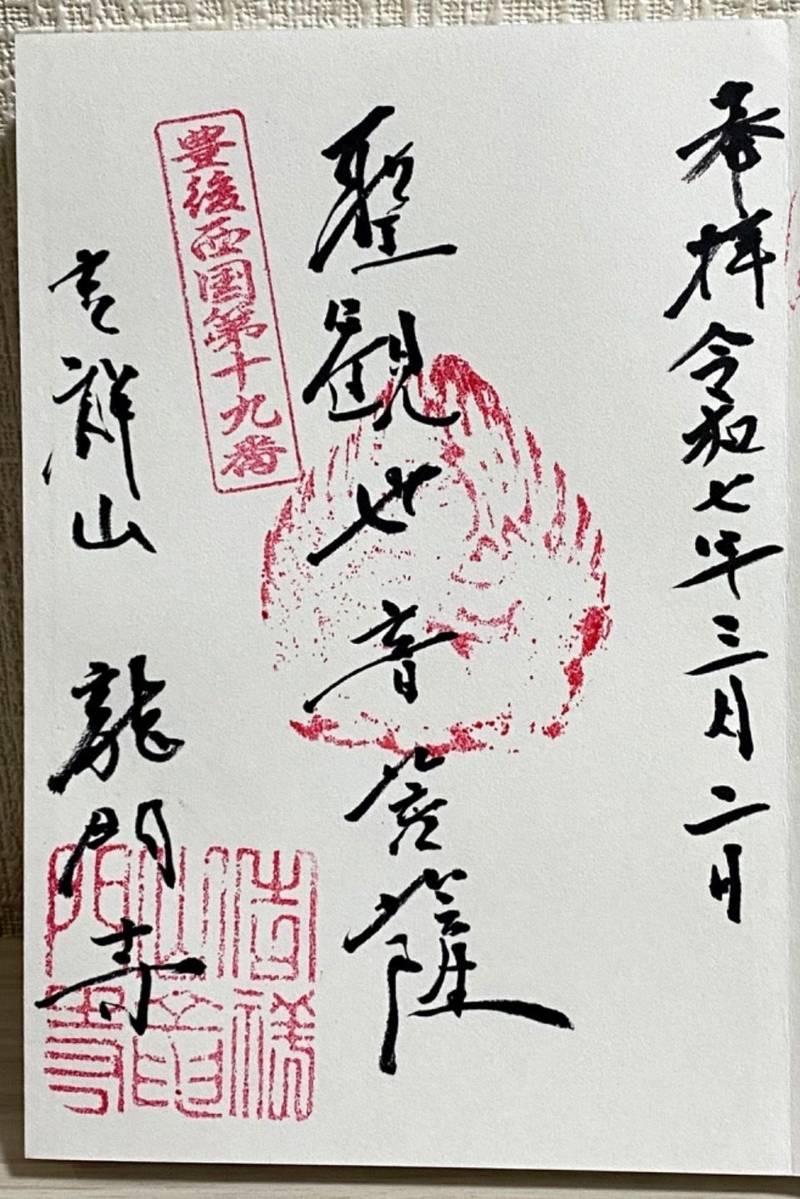 奉拝 令和七年三月二日
聖観世音菩薩
豊後西国第十九番
吉祥山 龍門寺
吉祥山龍門寺